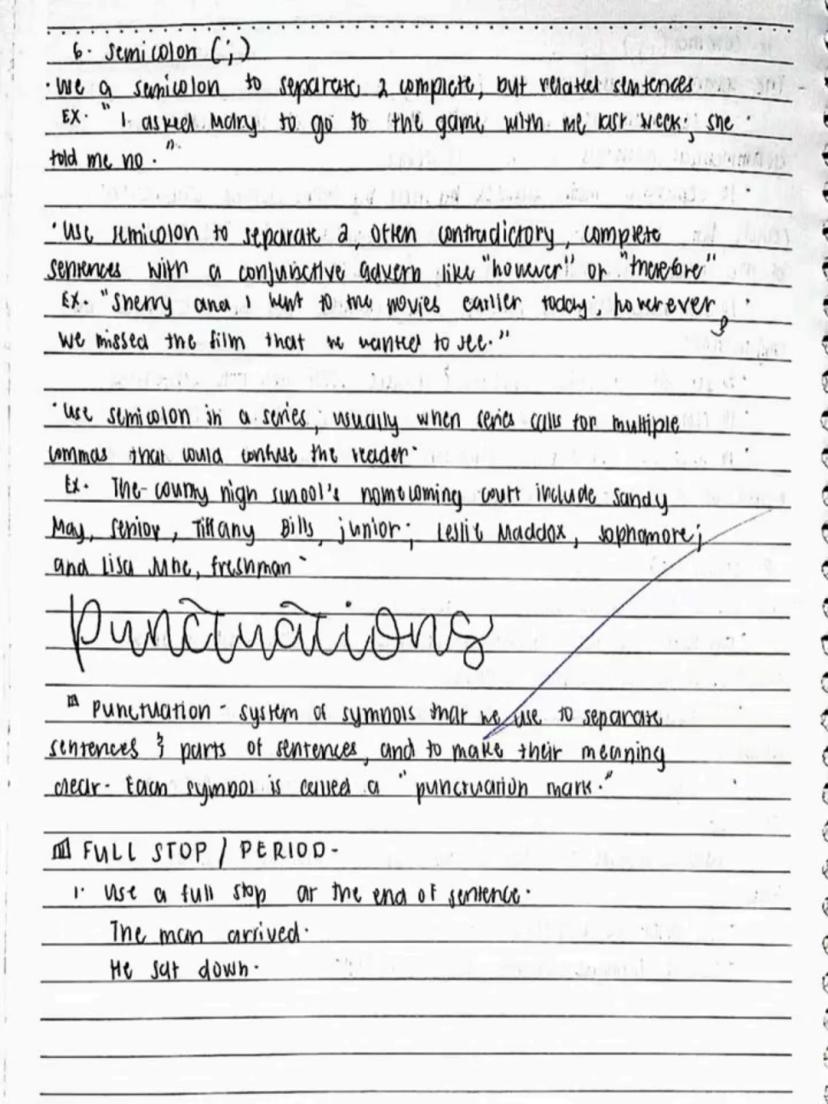 6. semicolon (;)
• Use a semicolon to separate 2 complete, but related sentences
EX. "I asked Mary to go to the game with me last week; she
told me no."
• Use semicolon to separate 2, often contradictory, complete
sentences with a conjunctive adverb like "however" or "therefore"
Ex. "Sherry and I went to the movies earlier today, however,
we missed the film that we wanted to see."
• Use semicolon in a series, usually when series calls for multiple
commas that could confuse the reader.
Ex. The county high school's homecoming court include Sandy
May, senior, Tiffany Bills, junior; Leslie Maddox, sophomore;
and Lisa Mhe, freshman.
Punctuations
Punctuation - system of symbols that we use to separate
sentences & parts of sentences, and to make their meaning
clear. Each symbol is called a "punctuation mark."
FULL STOP / PERIOD -
1. Use a full stop at the end of sentence.
The man arrived.
He sat down.